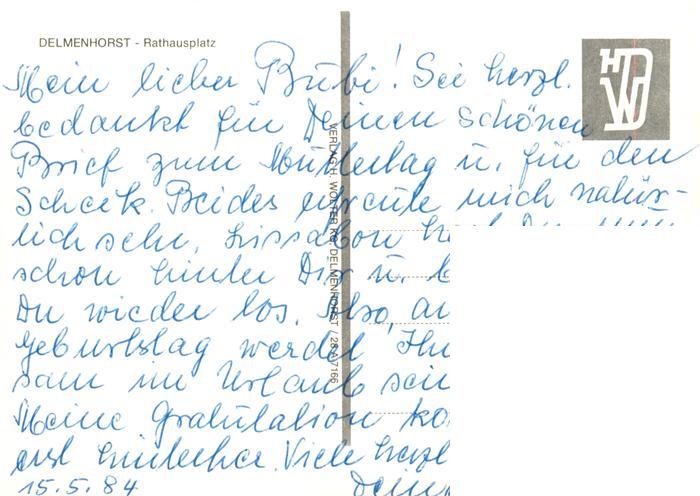 DELMENHORST - Rathausplatz
HDW
Mein lieber Bubi! Sei herzl.
bedankt für Deinen schönen
Brief zum Muttertag u. für den
Scheck. Beides freute mich natür-
lich sehr. Lissabon
schon hinter Dir u.
Du wieder los. Also, an
Geburtstag werdet Ihr
sam im Urlaub sein
Meine Gratulation
erst hinterher. Viele herzl
15.5.84
VERLAG H. WOLTER KG, DELMENHORST / 28 A 7166